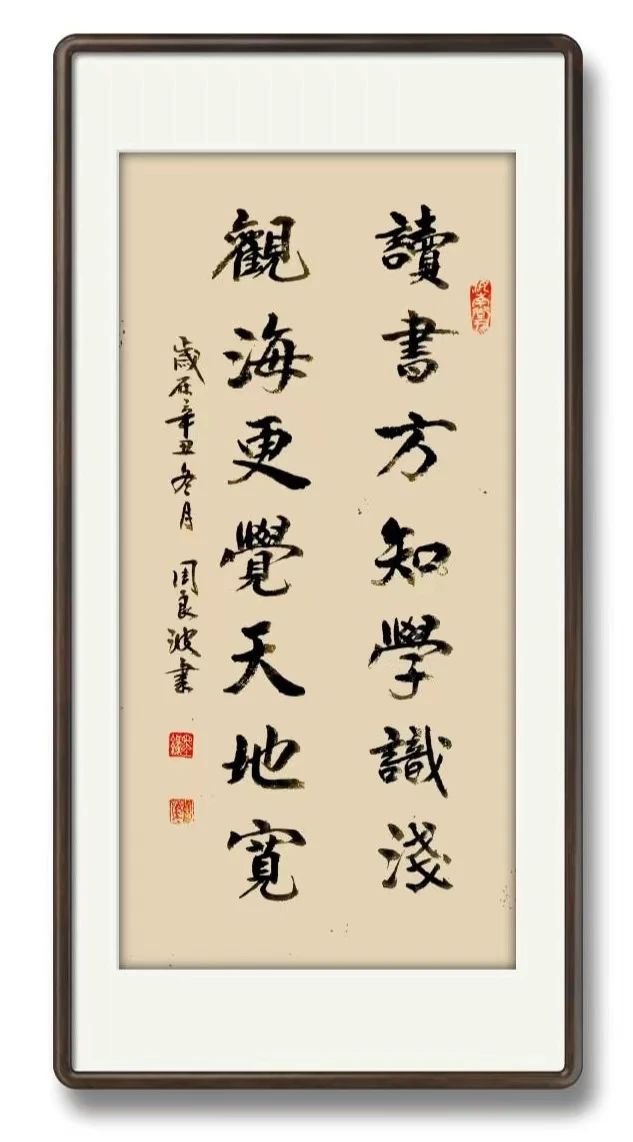 讀書方知學識淺
觀海更覺天地寬
歲在辛丑冬月 周良波書